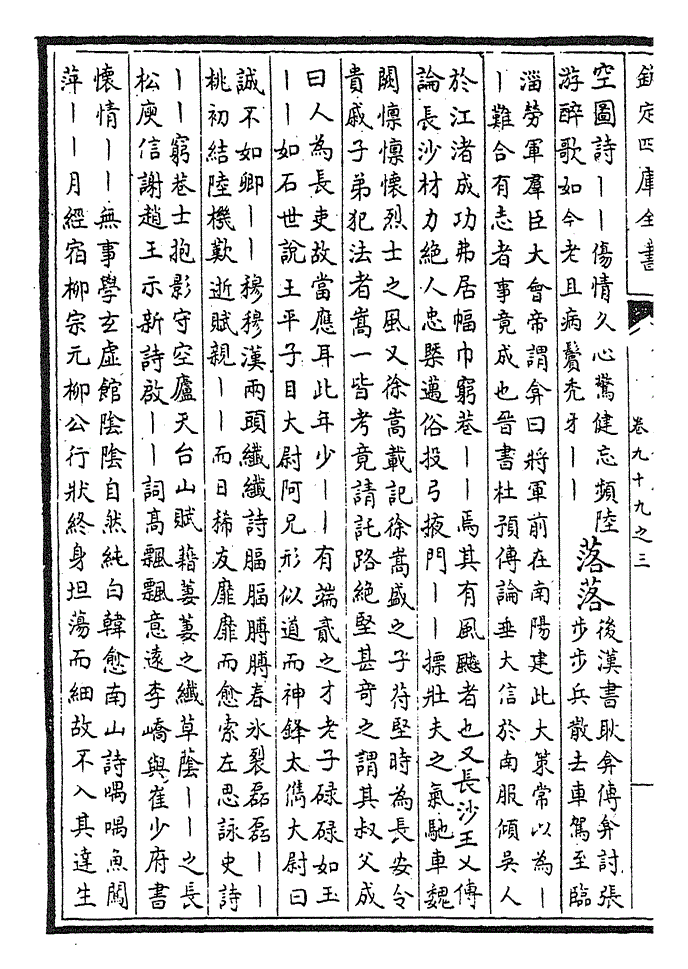 欽定四庫全書 卷九十九之三
空圖詩丨丨傷情久心驚健忘頻陸
游醉歌如今老且病鬢禿牙丨丨
落落
後漢書耿弇傳弇討張
步步兵散去車駕至臨
淄勞軍羣臣大會帝謂弇曰將軍前在南陽建此大策常以為丨
丨難合有志者事竟成也晉書杜預傳論垂大信於南服傾吳人
於江渚成功弗居幅巾窮巷丨丨焉其有風飈者也又長沙王乂傳
論長沙材力絕人忠槩邁俗投弓掖門丨丨標壯夫之氣馳車魏
闕懍懍懷烈士之風又徐嵩載記徐嵩盛之子苻堅時為長安令
貴戚子弟犯法者嵩一皆考竟請託路絕堅甚奇之謂其叔父成
曰人為長吏故當應耳此年少丨丨有端貳之才老子碌碌如玉
丨丨如石世說王平子目大尉阿兄形似道而神鋒太儁大尉曰
誠不如卿丨丨穆穆漢兩頭纖纖詩腷腷膊膊春氷裂磊磊丨丨
桃初結陸機歎逝賦親丨丨而日稀友靡靡而愈索左思詠史詩
丨丨窮巷士抱影守空廬天台山賦藉萋萋之纖草蔭丨丨之長
松庾信謝趙王示新詩啟丨丨詞高飄飄意遠李嶠與崔少府書
懷情丨丨無事學玄虛館陰陰自然純白韓愈南山詩喁喁魚闖
萍丨丨月經宿柳宗元柳公行狀終身坦蕩而細故不入其達生